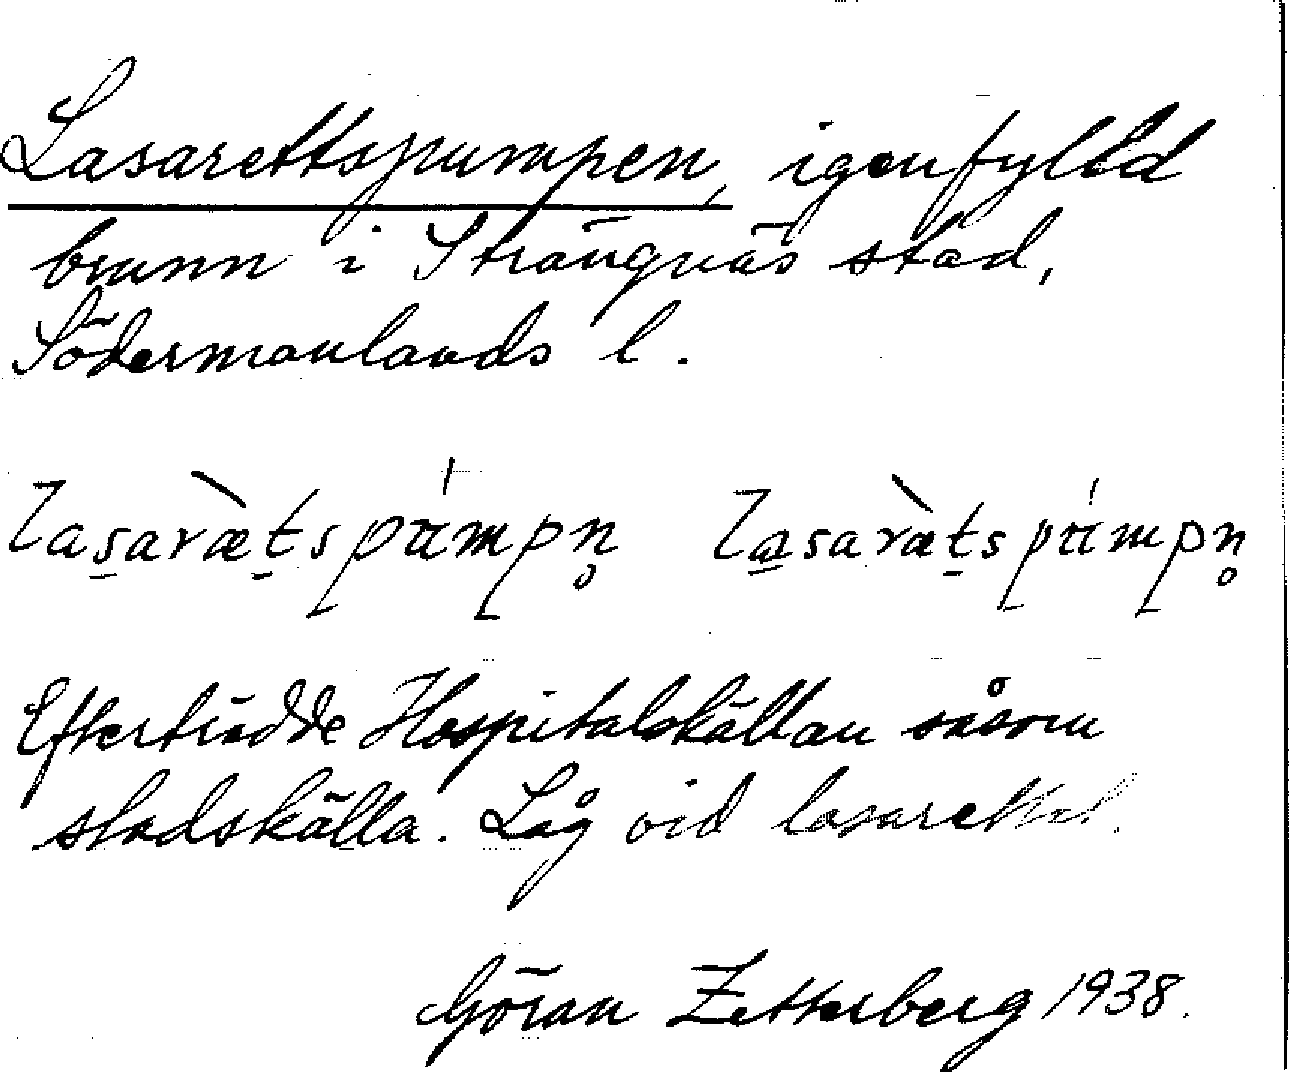 Lasarettspumpen, igenfylld
brunn i Strängnäs stad,
Södermanlands l.
lasaræ̀tspu̍mpn̥ lasaræ̀tspu̍mpn̥
Efterträdde Hospitalskällan såsom
stadskälla. Låg vid lasarettet.
Göran Zetterberg 1938.